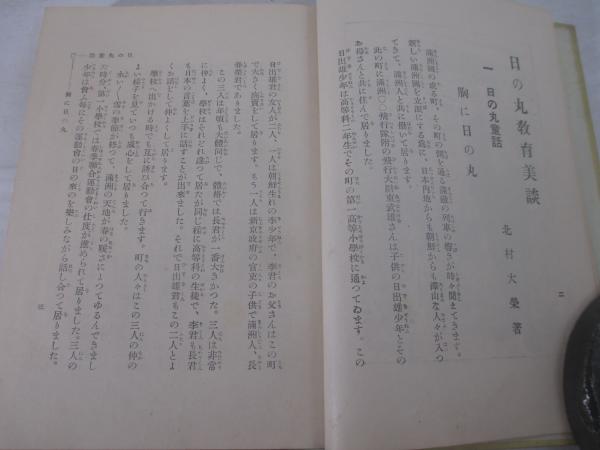 日の丸教育美談
北村大榮著
一 日の丸童話
胸に日の丸
滿洲國の或る町、その町の側を通る滿鐵の列車の響きが時々聞えてきます。
新しい滿洲國を立派にする爲に、日本内地からも朝鮮からも澤山な人々が入つ
てきて、滿洲人と共に働いて居ります。
此の町に滿洲〇〇飛行隊附の飛行大尉東武雄さんは子供の日出雄少年とその
お母さんと共に住んで居りました。
日出雄少年は高等科二年生でその町の第一高等小學校に通つてゐます。この
二
日出雄君の友人が二人、一人は朝鮮生れの李少年で、李君のお父さんはこの町
で大きな商賣をして居ります。もう一人は新京政府の官吏の子供で滿洲人、長
春榮君でありました。
この三人は年頃も大體同じで、體格では長君が一番大きかつた。三人は非常
に仲よく、學校はそれぞれ違つて居たが同じ樣に高等科の生徒で、李君も長君
も日本の言葉を上手に話すことが出來ました。それで日出雄君もこの二人とよ
くお話して仲よくして居ります。
學校へ出かける時でも互に誘ひ合つて行きます。町の人々はこの三人の仲の
よい樣子を見ていつも感心して居りました。
永い〳〵雪の季節が終つて、滿洲の天地が春の暖さによつてゆるんできまし
た時分、第一小學校では春季聯合運動會の仕度が進められて居りました。三人の
少年は會ふ毎にその運動會の日の來るのを樂しみながら話し合つて居りました。
胸に日の丸
三